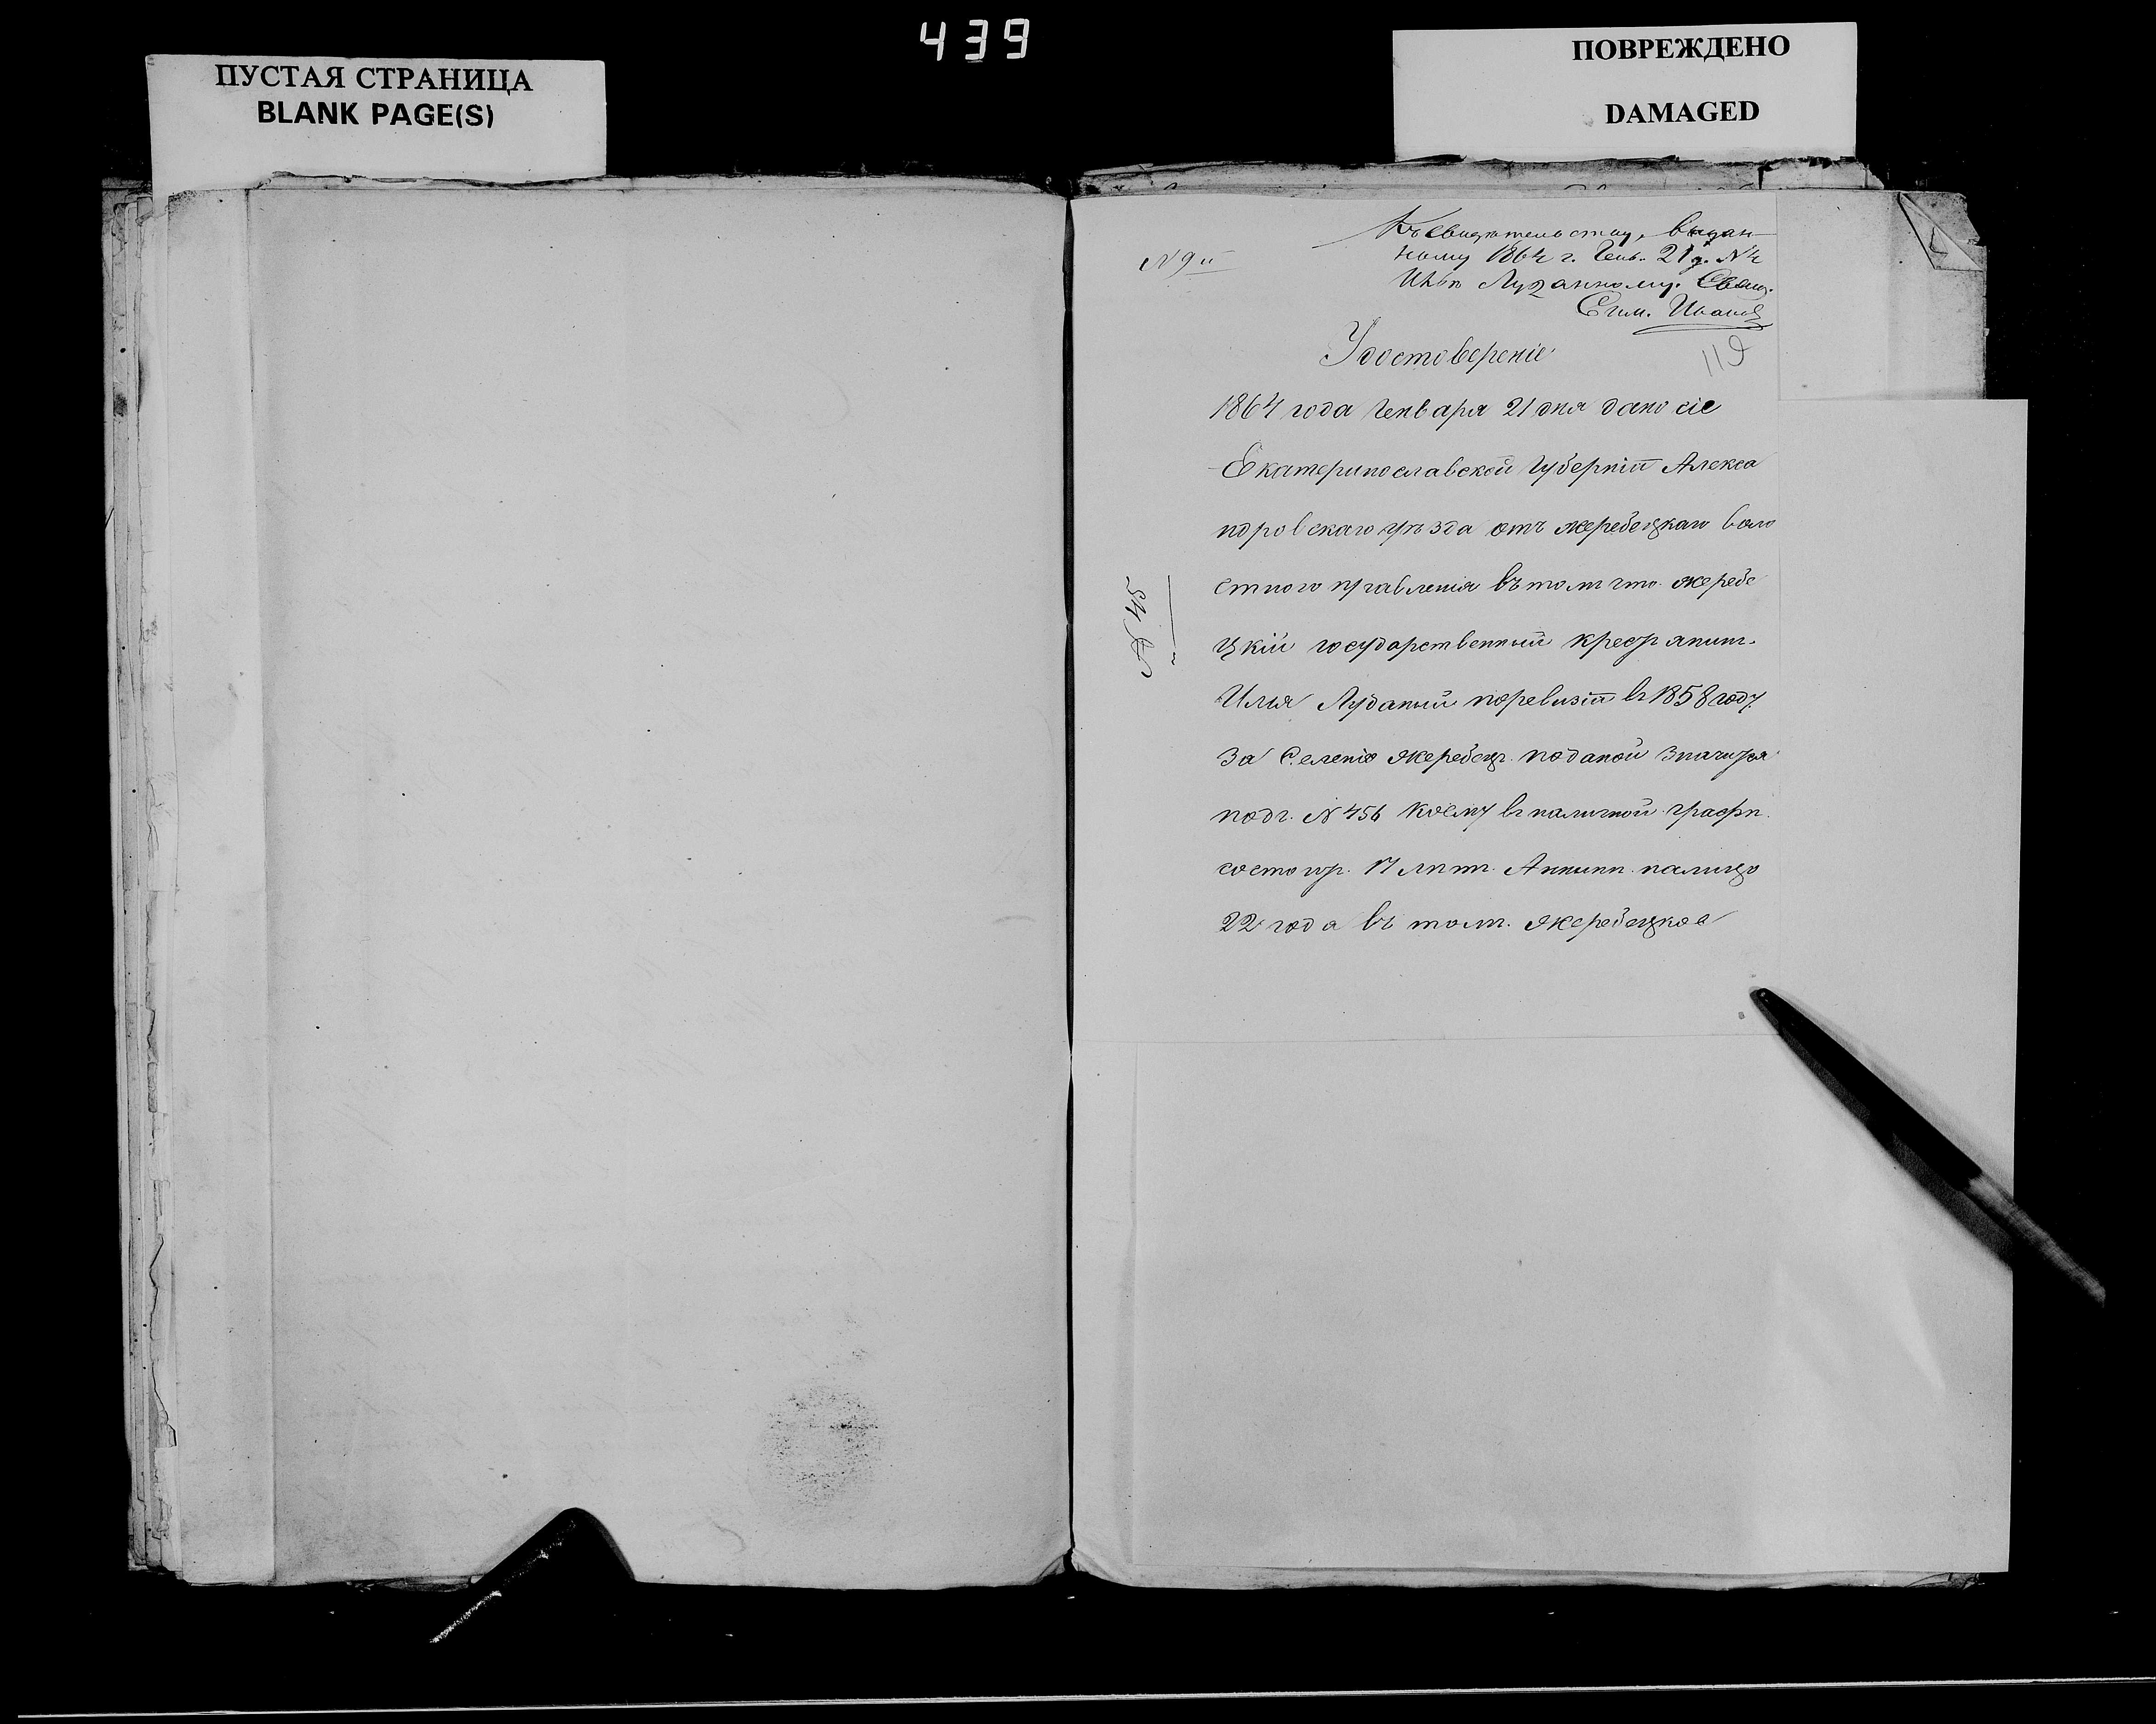 439
ПУСТАЯ СТРАНИЦА
BLANK PAGE(S)
ПОВРЕЖДЕНО
DAMAGED
Къ свидѣтельству, выдан
ному 1864 г. Генв. 21 д. №4
Свящ.
Іоан. Иванов
N 9й
119
Удостоверение
1864 года Генваря 21 дня дано сіе
Екатеринославской Губерніи Алекса
ндровскаго уѣзда отъ жеребецкаго воло
стного правленія въ том что жеребе
цкій государственный крестьянин
Илья Луданый поревизіи въ 1858 году
за Селеніе жеребец поданой значится
подъ N 456 коему въ наличной графи
состоит 17 лѣтъ налицо
22 года въ том. жеребецкое